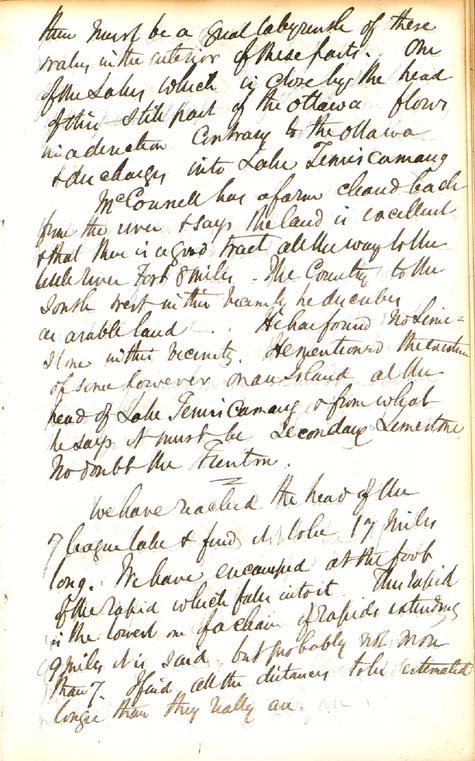 there must be a great labyrinth of these
waters in the interior of these parts. One
of the Lakes which is close by the head
of this still part of the Ottawa flows
in a direction Contrary to the Ottawa
& discharges into Lake Temiscamang
McConnell has a farm cleared back
from the river & says the land is excellent
& that there is a good tract all the way to the
little river Fort 8 miles - The Country to the
South west in this vicinity he describes
as arable land. He has found no Lime=
stone in this vicinity. He mentioned the existence
of some however on an Island at the
head of Lake Temiscamang & from what
he says it must be Secondary Limestone
No doubt the Trenton.
We have reached the head of the
7 league lake & find it to be 17 miles
long. We have encamped at the foot
of the rapid which falls into it. This rapid
is the lowest one of a chain of rapids extending
9 miles it is said, but probably not more
than 7. I find all the distances to be estimated
longer than they really are.